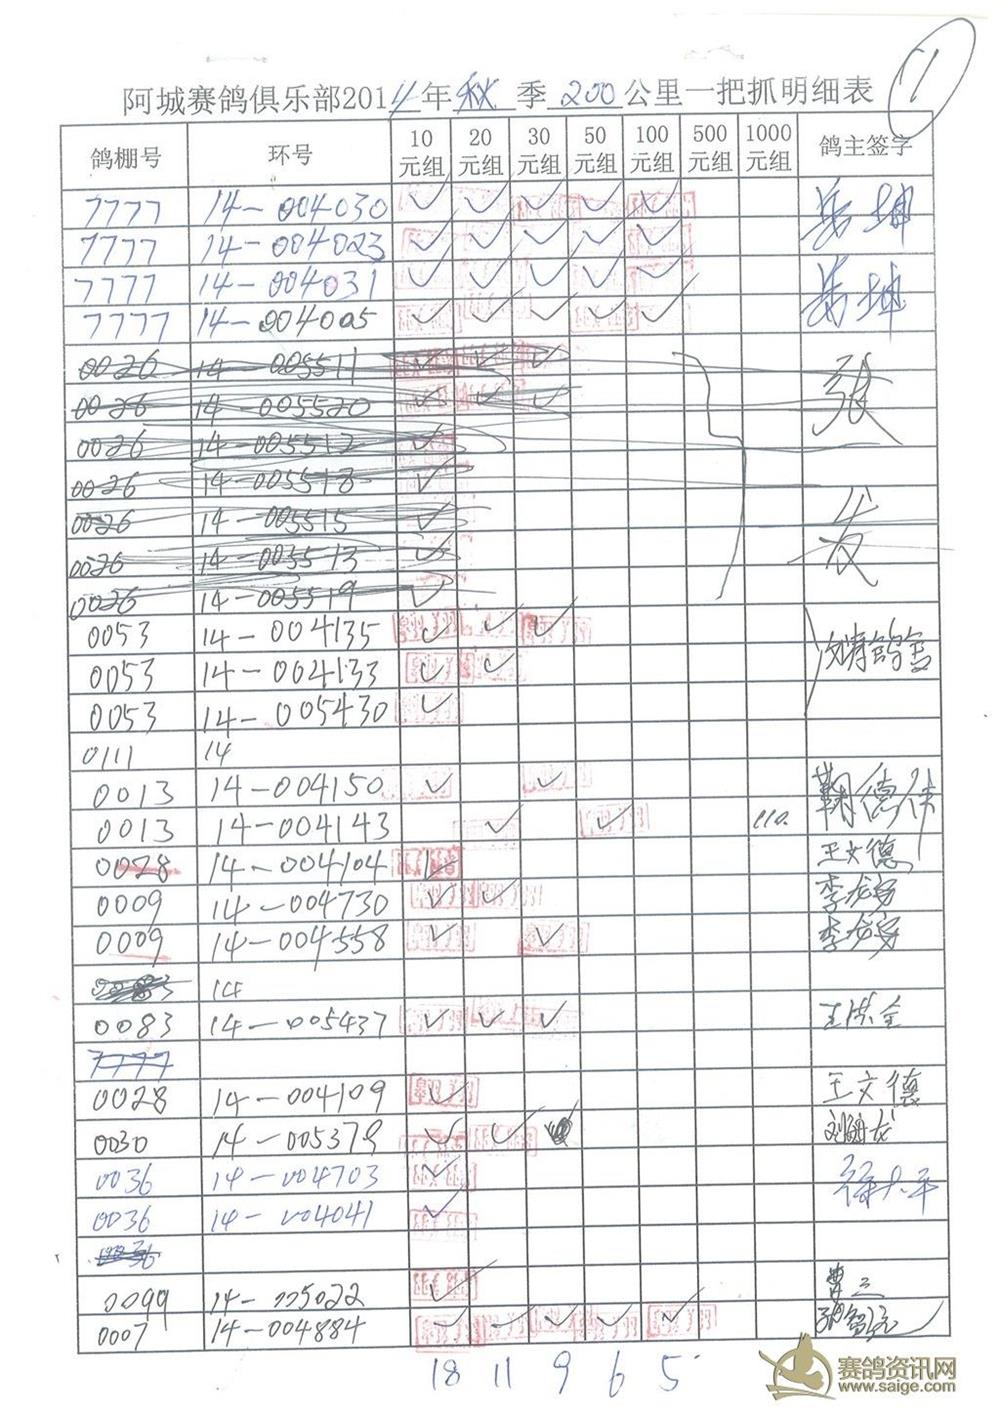 11
阿城赛鸽俱乐部2014年秋季200公里一把抓明细表
鸽棚号 环号 10元组 20元组 30元组 50元组 100元组 500元组 1000元组 鸽主签字
7777 14-004030 ✓ ✓ ✓ ✓ ✓ 岳坤
7777 14-004023 ✓ ✓ ✓ ✓ ✓
7777 14-004031 ✓ ✓ ✓ ✓ ✓ 岳坤
7777 14-004005 ✓ ✓ ✓ ✓ ✓
0026 14-005511 ✓ ✓ ✓ 张
0026 14-005520 ✓ ✓ ✓
0026 14-005512 ✓
0026 14-005518 ✓
0026 14-005515 ✓
0026 14-005513 ✓
0026 14-005519 ✓
0053 14-004135 ✓ ✓ ✓
0053 14-004133 ✓ ✓
0053 14-005430 ✓
0111 14
0013 14-004150 ✓ ✓
0013 14-004143 ✓ ✓
0028 14-004104 ✓ 王文德
0009 14-004730 ✓ ✓
0009 14-004558 ✓ ✓
14
0083 14-005437 ✓ ✓ ✓
7777
0028 14-004109 ✓ 王文德
0030 14-005379 ✓ ✓
0036 14-004703 ✓
0036 14-004041 ✓
0099 14-005022 ✓
0007 14-004884 ✓ ✓ ✓ ✓ ✓
18 11 9 6 5
赛鸽资讯网
www.saige.com